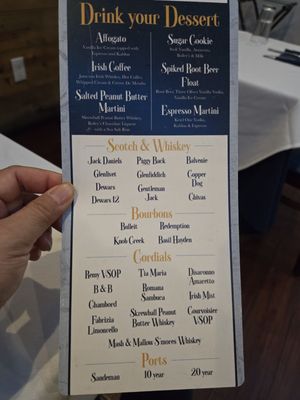 Drink your Dessert
Affogato
Vanilla Ice Cream topped with
Espresso and Kahlua
Irish Coffee
Jameson Irish Whiskey, Hot Coffee,
Whipped Cream & Creme De Menthe
Salted Peanut Butter
Martini
Skrewball Peanut Butter Whiskey,
Bailey's Chocolate Liqueur
with a Sea Salt Rim
Sugar Cookie
Vodka, Amaretto,
Bailey's & Milk
Spiked Root Beer
Float
Root Beer, Three Olives Vanilla Vodka,
Vanilla Ice Cream
Espresso Martini
Ketel One Vodka,
Kahlua & Espresso
Scotch & Whiskey
Jack Daniels
Piggy Back
Balvenie
Glenlivet
Glenfiddich
Copper
Dog
Dewars
Gentleman
Jack
Dewars 12
Chivas
Bourbons
Bulleit
Redemption
Knob Creek
Basil Hayden
Cordials
Remy VSOP
Tia Maria
Disaronno
Amaretto
B & B
Romana
Sambuca
Irish Mist
Chambord
Skrewball Peanut
Butter Whiskey
Courvoisier
VSOP
Fabrizia
Limoncello
Mash & Mallow S'mores Whiskey
Ports
Sandeman
10 year
20 year